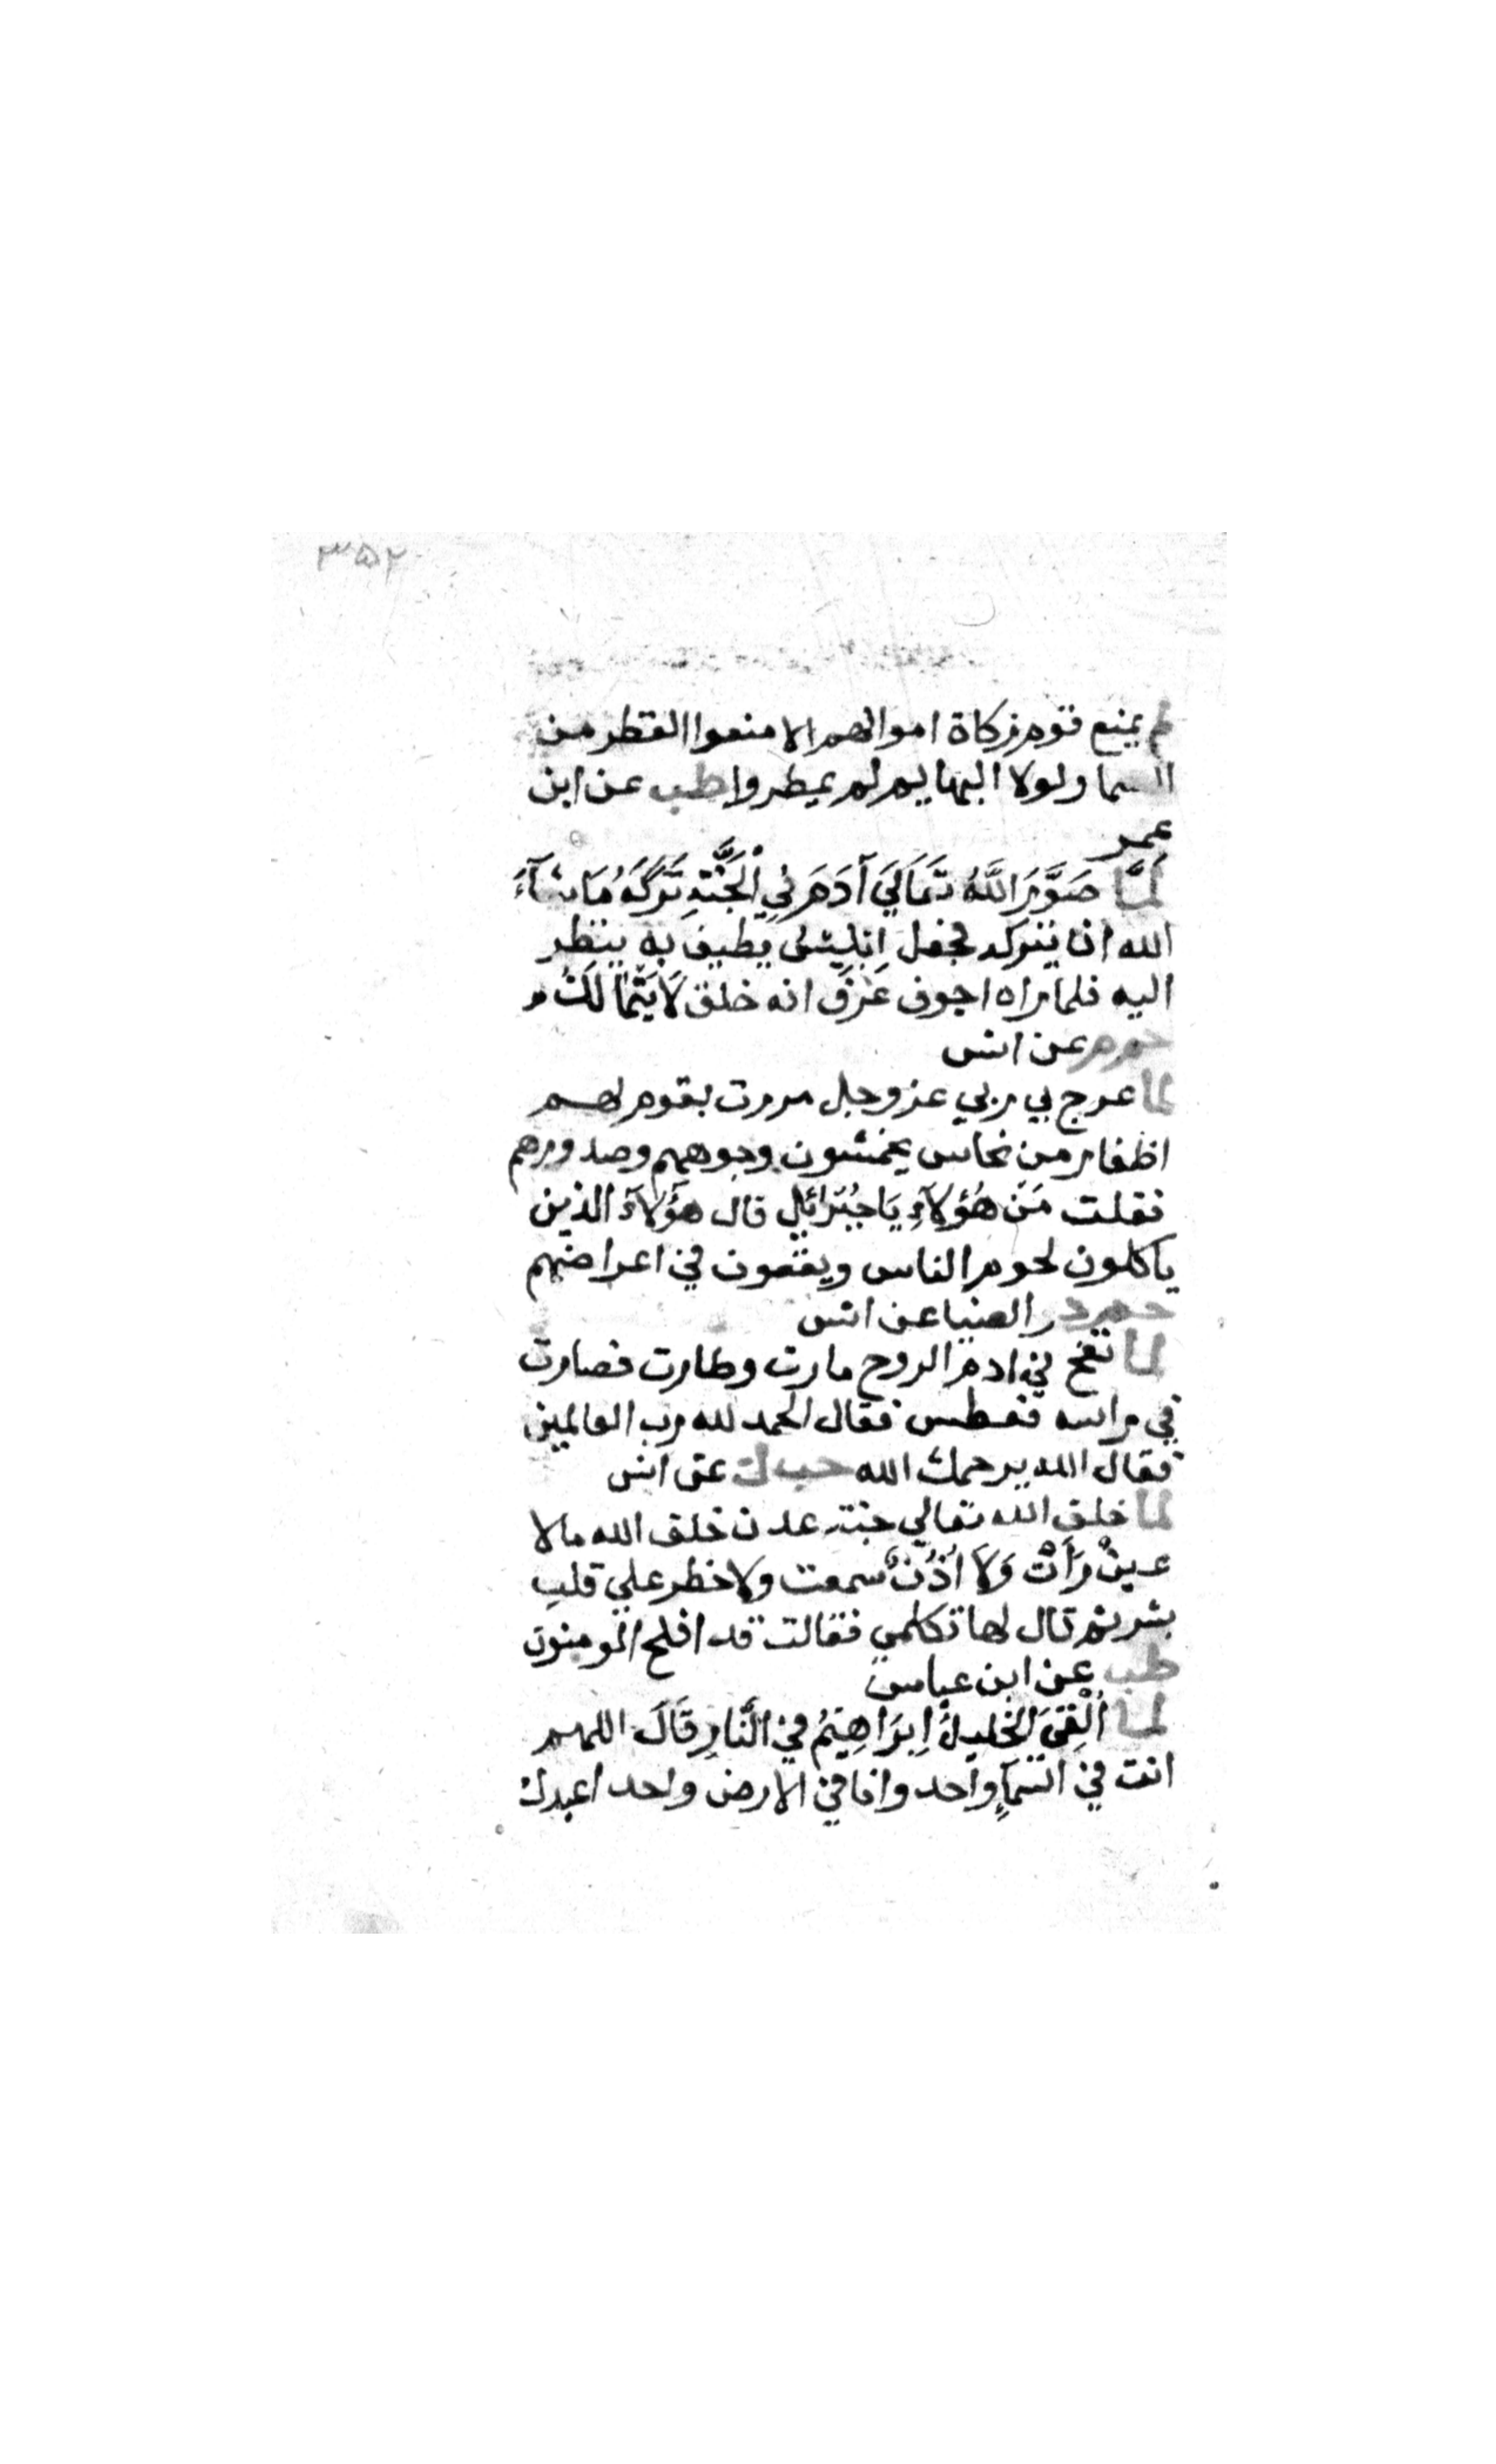 ٣٥٢
لم يمنع قوم زكاة اموالهم الا منعوا القطر من
السما ولولا البهايم لم يمطروا طب عن ابن
عمر
لَمَّا صَوَّرَ اللَّهُ تَعَالَيَ آدَمَ فِي الْجَنَّةِ تَرَكَهُ مَا شَآءَ
الله ان يتركه فجعل اِبْلِيسُ يطيف به ينظر
اليه فلما راه اجوف عَرَفَ انه خلق لَا يَتَمَالَكُ
حم م عن انس
لما عرج بي ربي عز وجل مررت بقوم لهم
اظفار من نحاس يخمشون وجوههم وصدورهم
فقلت مَنْ هُؤلَآءِ يَا جِبْرَائِلُ قال هؤلآء الذين
ياكلون لحوم الناس ويقعون في اعراضهم
حم د والضيا عن انس
لما نفخ في ادم الروح مارت وطارت فصارت
في راسه فعطس فقال الحمد لله رب العالمين
فقال الله يرحمك الله حب ك عن انس
لما خلق الله تعالي جنة عدن خلق الله ما لا
عينٌ رَأَتْ وَلَا اُذُنٌ سمعت ولا خطر علي قلبِ
بشر ثم قال لها تكلمي فقالت قد افلح المومنون
طب عن ابن عباس
لما اُلْقِيَ الخليلُ اِبْرَاهِيمُ في النَّارِ قَالَ اللهم
انت في السمآءِ واحد وانا في الارض واحد اعبدك